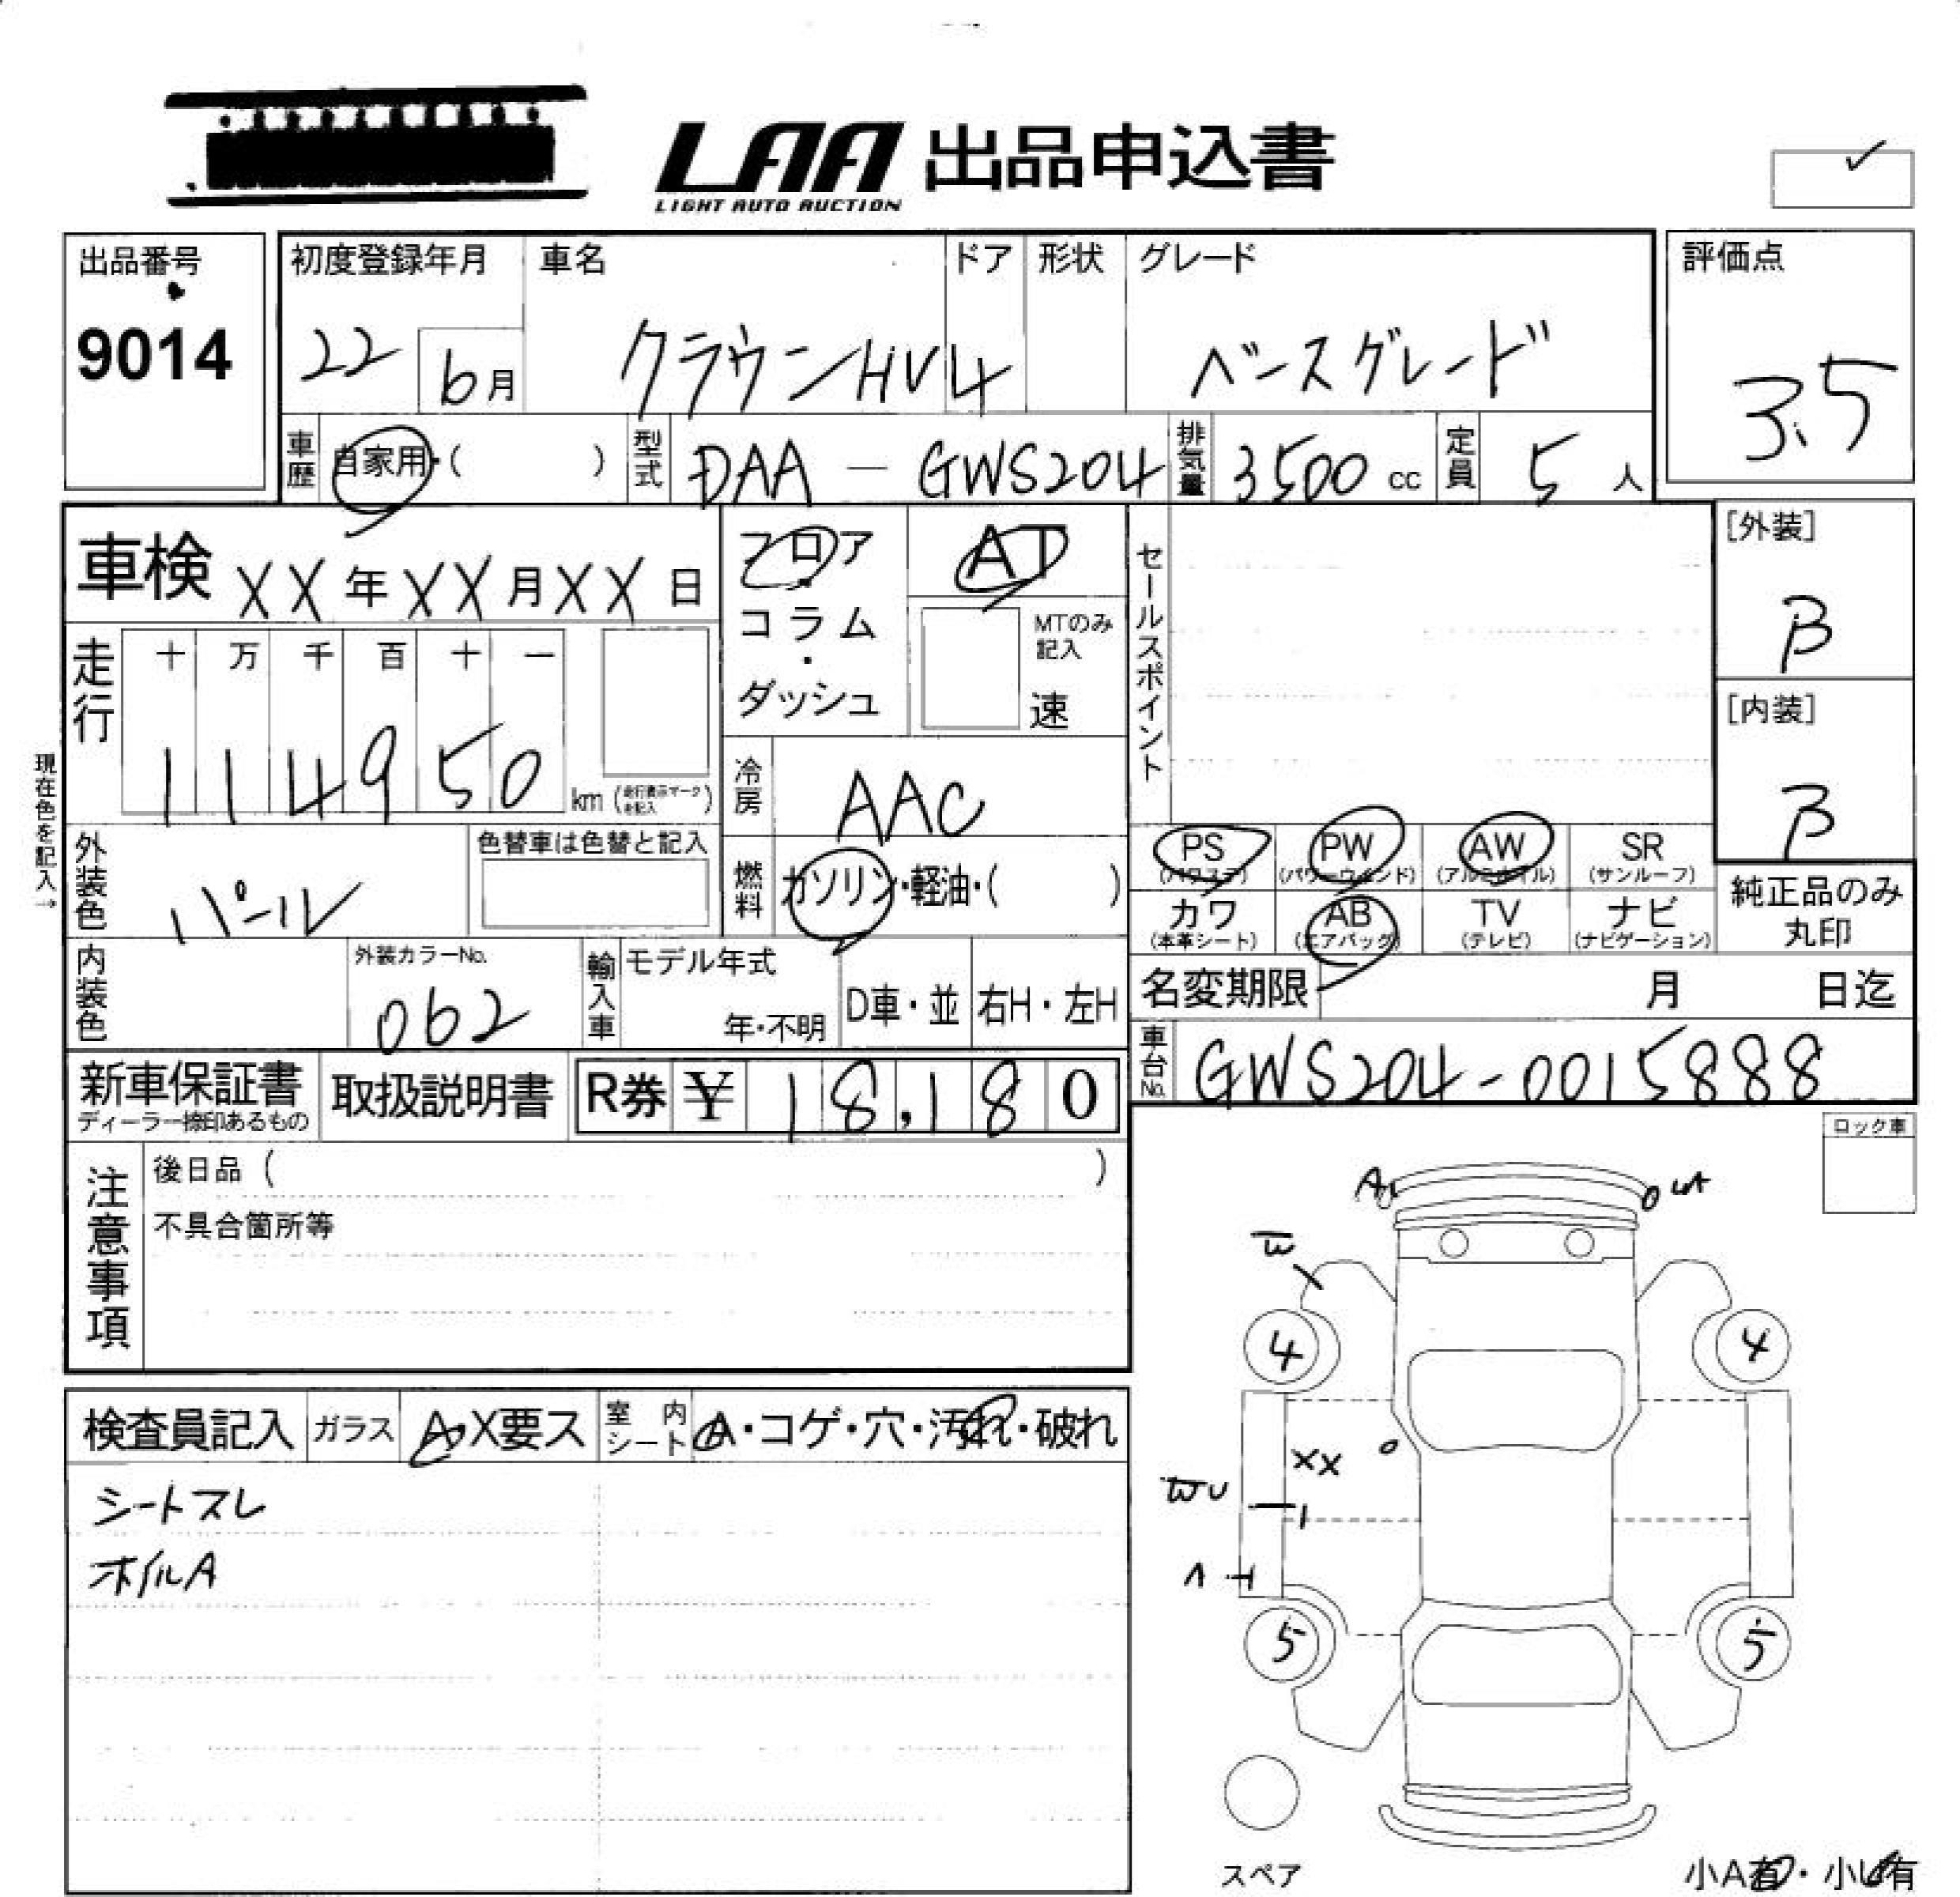 LAA 出品申込書
LIGHT AUTO AUCTION
出品番号
9014
初度登録年月
22
6月
車名
クラウンHV
ドア
4
形状
グレード
ベースグレード
評価点
3.5
車歴
自家用・( )
型式
DAA - GWS204
排気量
3500 cc
定員
5 人
車検 XX年XX月XX日
フロア・コラム・ダッシュ
AT
MTのみ記入
速
セールスポイント
[外装]
B
[内装]
B
走行
十 万 千 百 十 一
1 1 4 9 5 0 km (走行表示マークを記入)
現在色を記入→
冷房
AAC
外装色
パール
色替車は色替と記入
燃料
ガソリン・軽油・( )
PS
(パワステ)
PW
(パワーウインド)
AW
(アルミホイル)
SR
(サンルーフ)
カワ
(本革シート)
AB
(エアバッグ)
TV
(テレビ)
ナビ
(ナビゲーション)
純正品のみ
丸印
内装色
外装カラーNo.
062
輸入車
モデル年式
年・不明
D車・並
右H・左H
名変期限 月 日迄
車台No.
GWS204-0015888
新車保証書
ディーラー捺印あるもの
取扱説明書
R券 ¥ 18,180
ロック車
注意事項
後日品 ( )
不具合箇所等
A
W
4
4
XX
WU
5
5
スペア
小A有・小U有
検査員記入
ガラス
A・X要ス
室内シート
A・コゲ・穴・汚れ・破れ
シートスレ
ホイルA